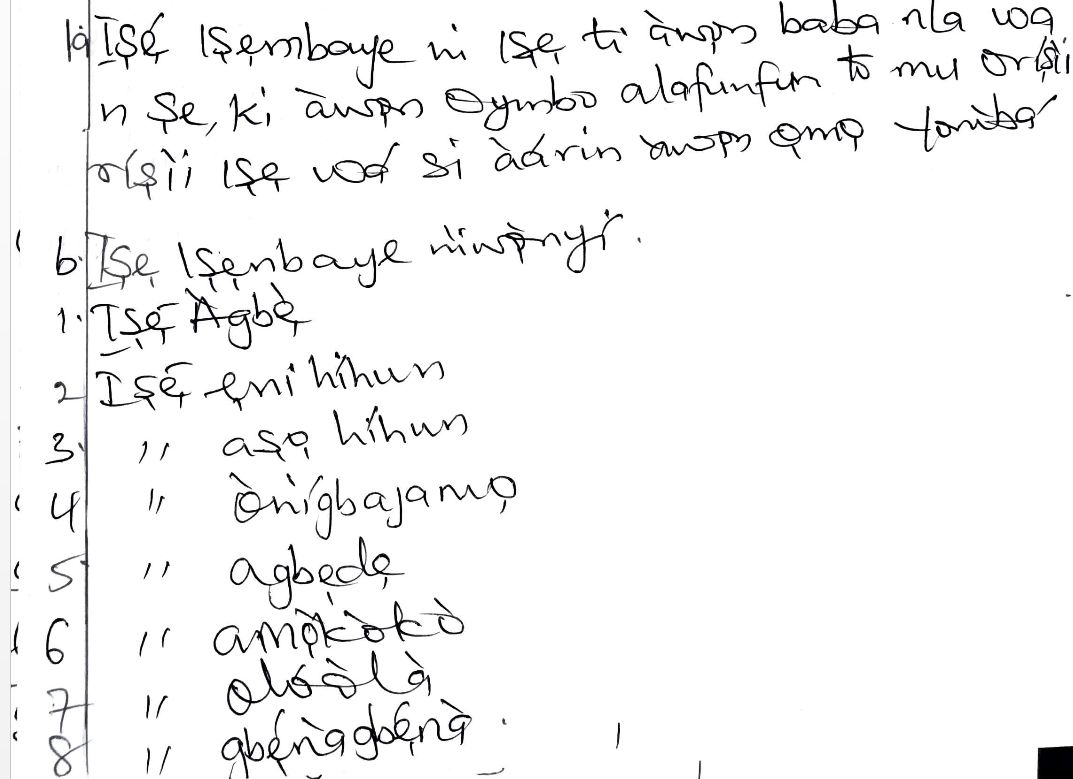 1a Iṣẹ́ Iṣẹmbaye ni Iṣẹ ti àwọn baba nla wa
n Ṣe, ki àwọn Oyinbo alafunfun to mu oríṣii
oríṣìi Iṣẹ wọ́ si àárin àwọn ọmọ Yorùbá
b. Iṣẹ Iṣẹnbaye nìwọ̀nyí.
1. Iṣẹ́ Àgbẹ̀
2 Iṣẹ́ ẹni híhun
3. " aṣọ híhun
4 " Ònígbajamọ
5 " agbẹdẹ
6 " amọ̀kòkò
7 " olóòlà
8 " gbẹ́nàgbẹ́nà.